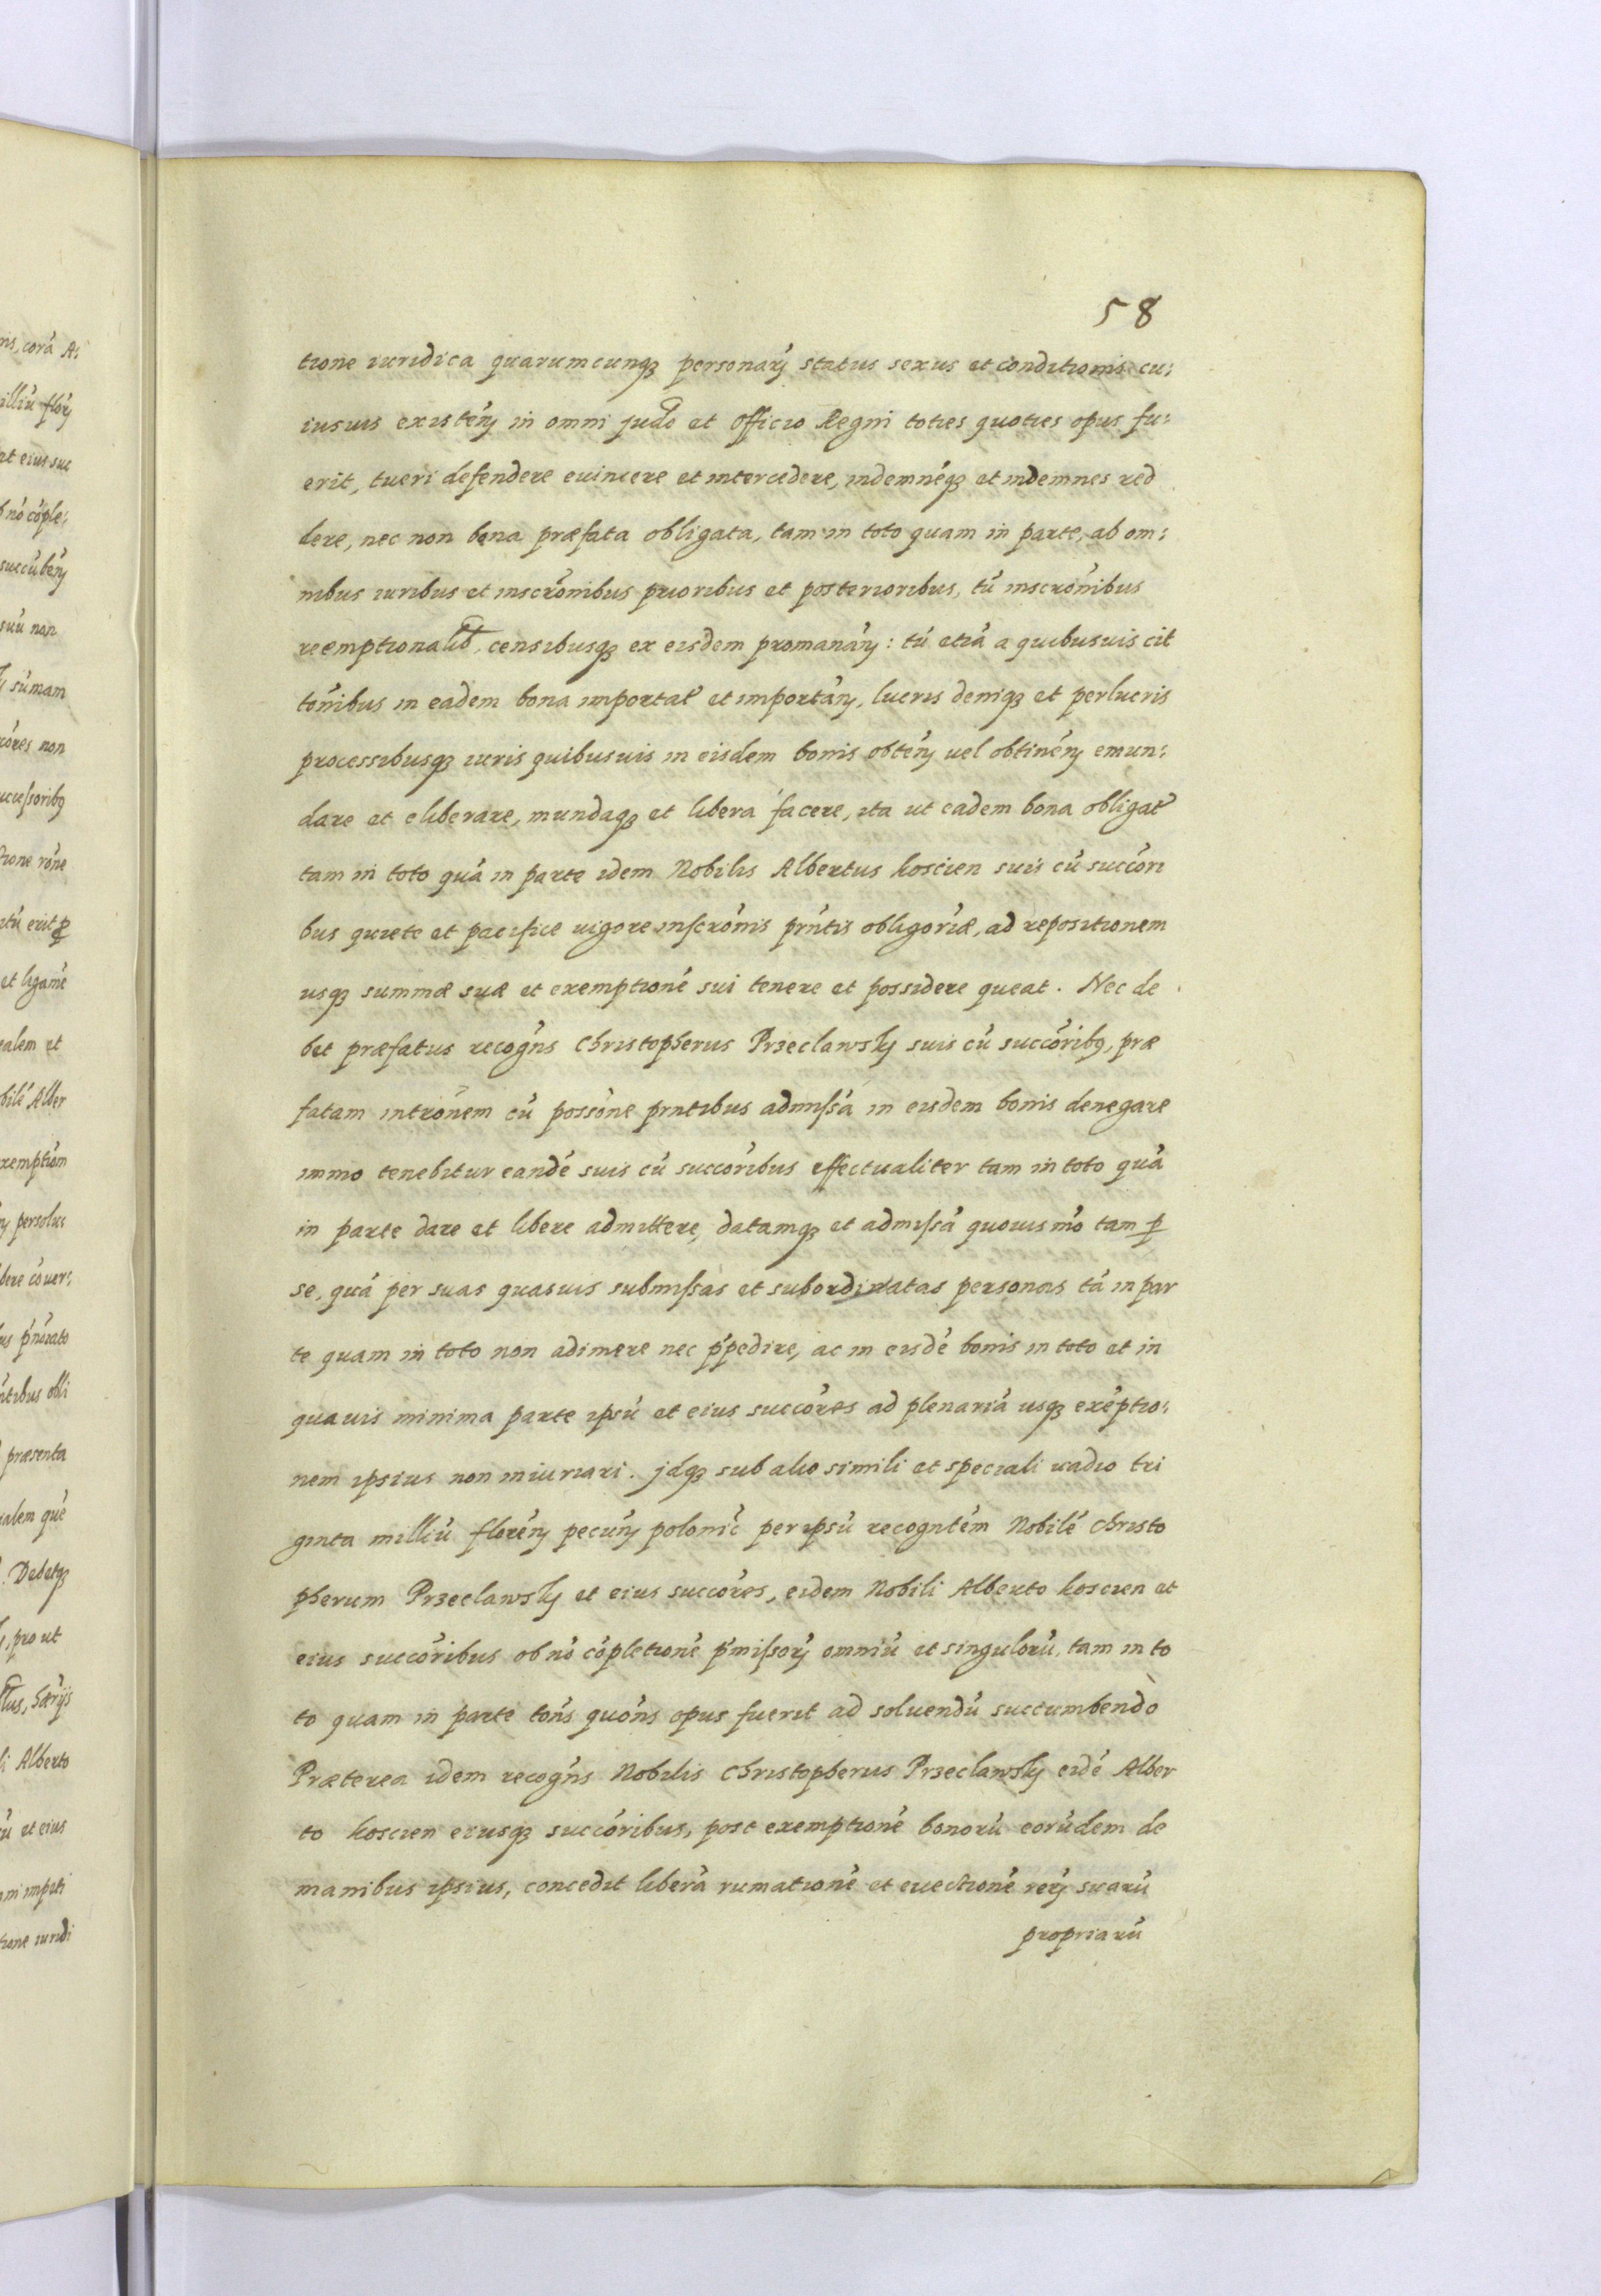 58
tione iuridica quarumcunqꝫ personarꝫ status sexus et conditionis cu:
iusuis existeńꝫ in omni judo et Officio Regni toties quoties opus fu:
erit, tueri defendere euincere et intercedere, indemnéqꝫ et indemnes red
dere, nec non bona præfata obligata, tam in toto quam in parte, ab om:
nibus iuribus et inscrōnibus prioribus et posterioribus, tū inscrōnibus
reemptionalib, censibusqꝫ ex eisdem promanańꝫ: tū etiā a quibusuis cit
tōnibus in eadem bona importat̃ et importańꝫ, lucris deniqꝫ et perlucris
processibusqꝫ iuris quibusuis in eisdem bonis obteńꝫ uel obtineńꝫ emun:
dare et eliberare, mundaqꝫ et libera facere, ita ut eadem bona obligat̃
tam in toto quā in parte idem Nobilis Albertus koscien suis cū succōri
bus quiete et pacifice uigore inscrōnis prn̄tis obligōriæ, ad repositionem
usqꝫ summæ suæ et exemptionē sui tenere et possidere queat. Nec de
bet præfatus recogn̄s Christopherus Przeclawskÿ suis cū succōribꝰ, præ
fatam intrōnem cū possōne prntibus admissā in eisdem bonis denegare
immo tenebitur eandē suis cū succōribus effectualiter tam in toto quā
in parte dare et libere admittere, datamqꝫ et admissā quouis mō tam ꝑ
se, quā per suas quasuis submissas et subordinatas personas tā in par
te quam in toto non adimere nec p̄pedire, ac in eisdē bonis in toto et in
quauis minima parte ipsū et eius succōres ad plenariā usqꝫ exēptio:
nem ipsius non iniuriari. jdqꝫ sub alio simili et speciali uadio tri
ginta milliū floreńꝫ pecuńꝫ polonić per ipsū recogntēm Nobilē Christo
pherum Przeclawskÿ et eius succōres, eidem Nobili Alberto koscien et
eius succōribus ob nō cōpletionē p̄missorꝫ omniū et singulorū, tam in to
to quam in parte ton̄s quon̄s opus fuerit ad soluendū succumbendò
Præterea idem recogn̄s Nobilis Christopherus Przeclawskÿ eidē Alber
to koscien eiusqꝫ succōribus, post exemptionē bonorū eorūdem de
manibus ipsius, concedit liberā rumationē et euectionē rerꝫ suarū
propriarū